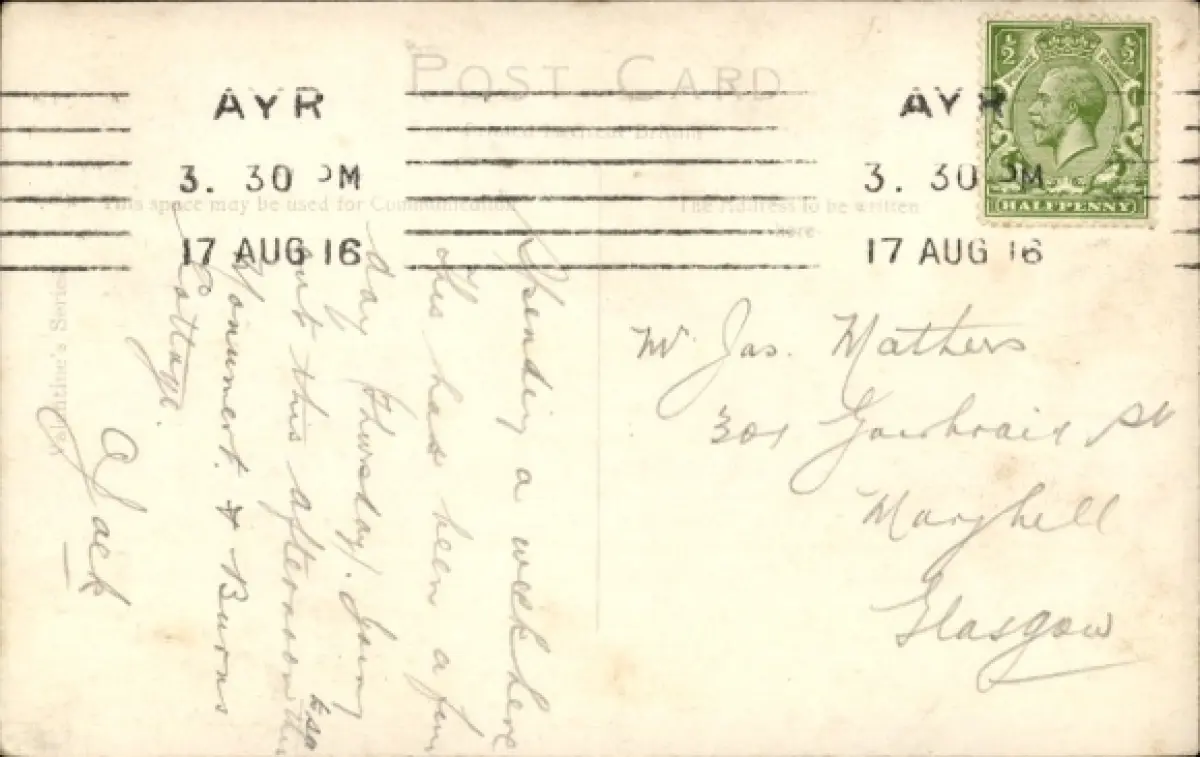 POST CARD
Printed in Great Britain
This space may be used for Communication
The Address to be written
here
Valentine's Series
AYR
3. 30 PM
17 AUG 16
AYR
3. 30 PM
17 AUG 16
½ ½
HALFPENNY
Spending a week here
this has been a fine
day Thursday. Going
out this afternoon
Monument. & Burns
Cottage.
Jack
Mr Jas. Mathers
301 St
Maryhill
Glasgow